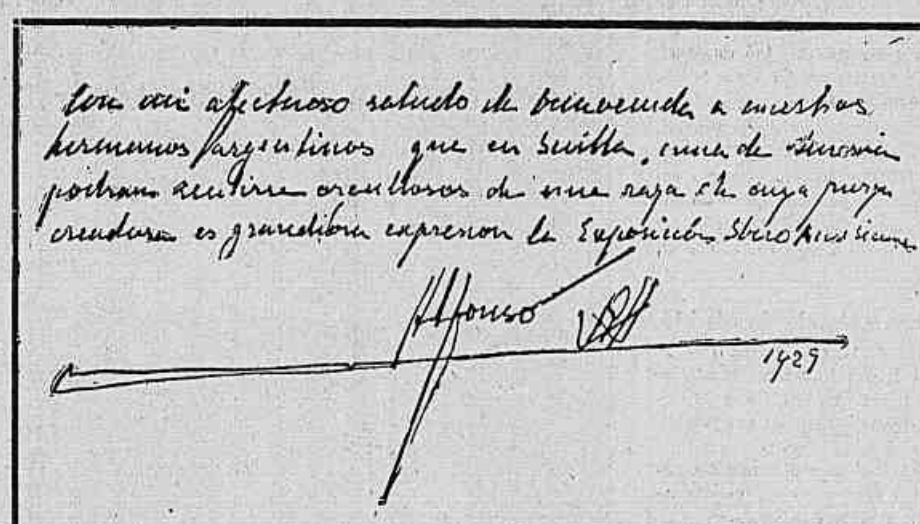 Con mi afectuoso saludo de bienvenida a nuestros
hermanos argentinos que en Sevilla, cuna de America
podran sentirse orgullosos de una raza de cuya fuerza
creadora es grandiosa expresion la Exposición Ibero Americana
Alfonso
1929